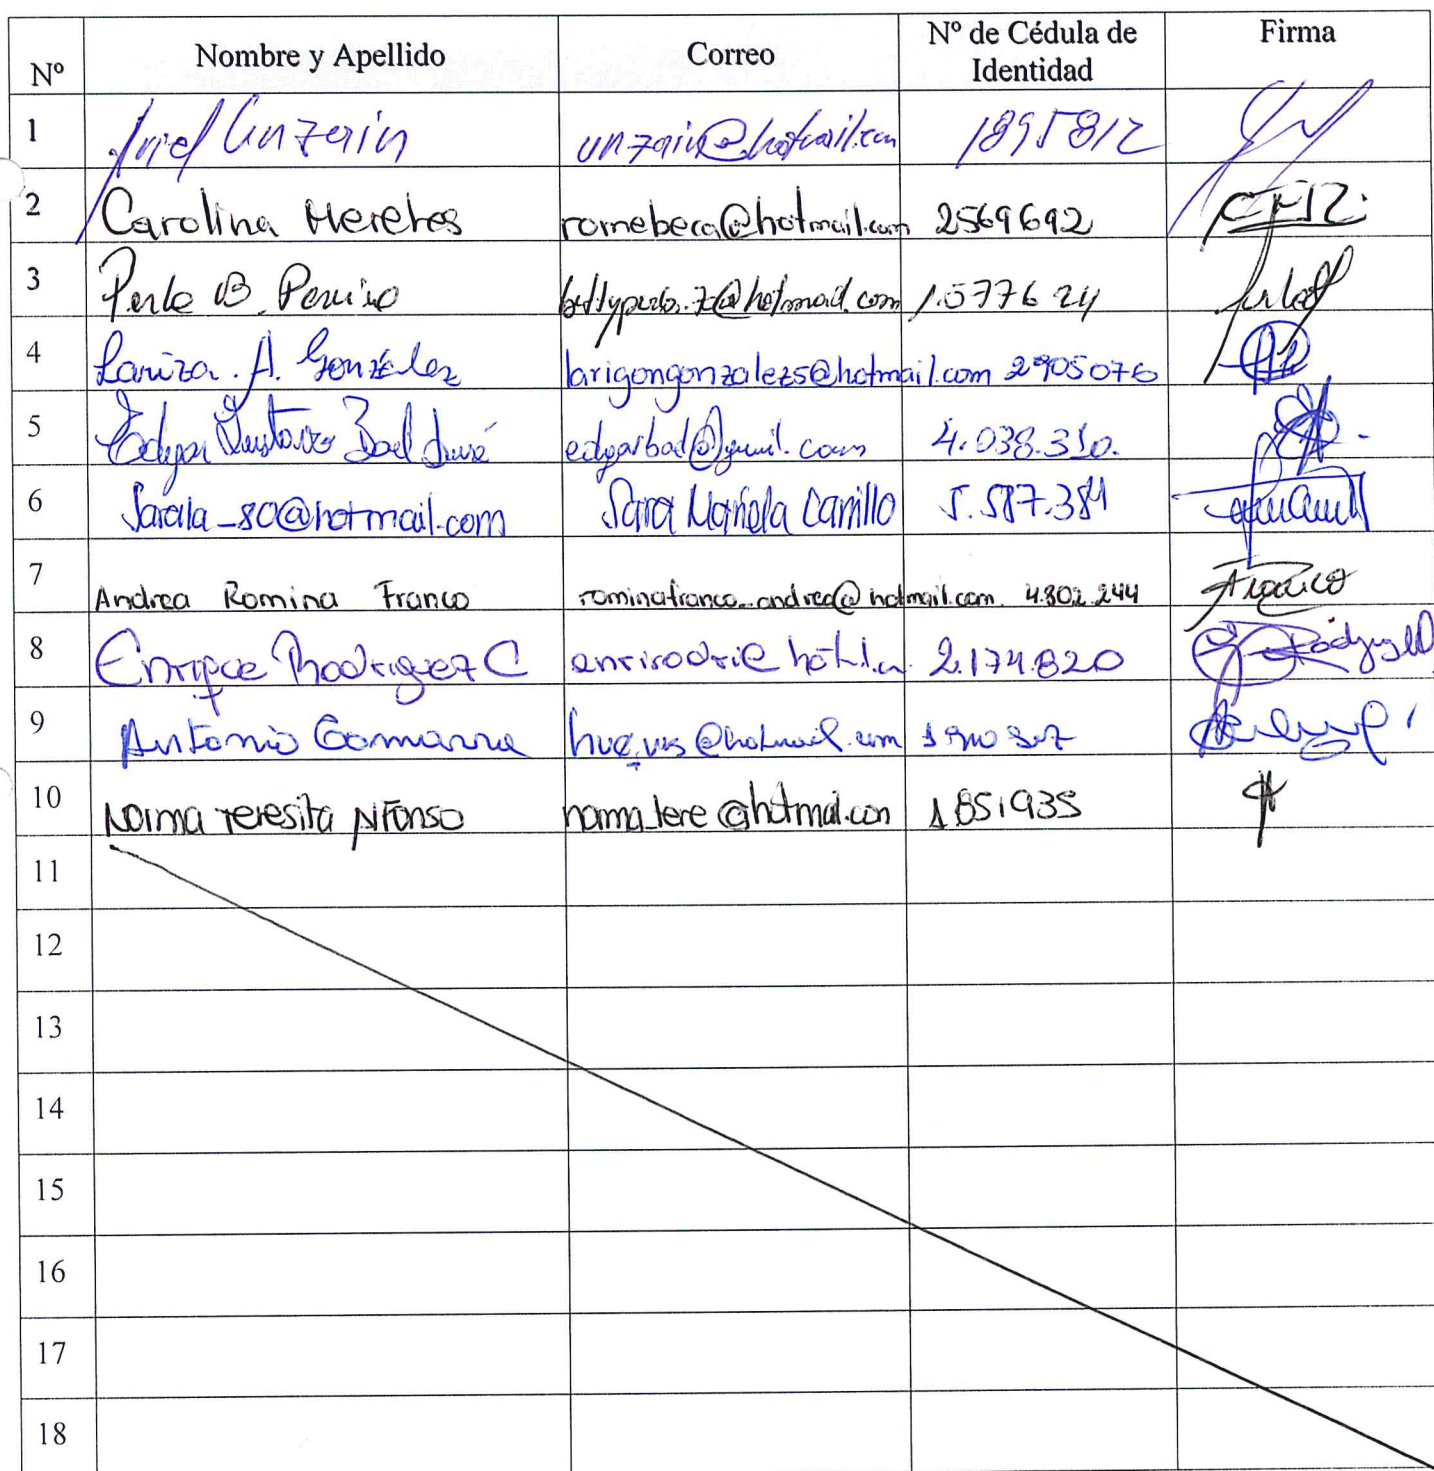 Nº Nombre y Apellido Correo Nº de Cédula de Identidad Firma
1 Ariel Unzain unzain@hotmail.com 1895812
2 Carolina Mereles romebeca@hotmail.com 2569692
3 Perla B. 1.577624
4 Lariza. A. González larigongonzalez5@hotmail.com 2905076
5 Edgar Gustavo edgarbad@gmail.com 4.038.310.
6 Sarala_80@hotmail.com Sara Mariela Carrillo 5.587.384
7 Andrea Romina Franco rominafranco.andrea@hotmail.com. 4.802.244 Franco
8 Enrique Rodriguez C 2.174.820
9 Antonio Gamarra
10 Norma Teresita Alfonso norma_tere@hotmail.con 1851935
11
12
13
14
15
16
17
18